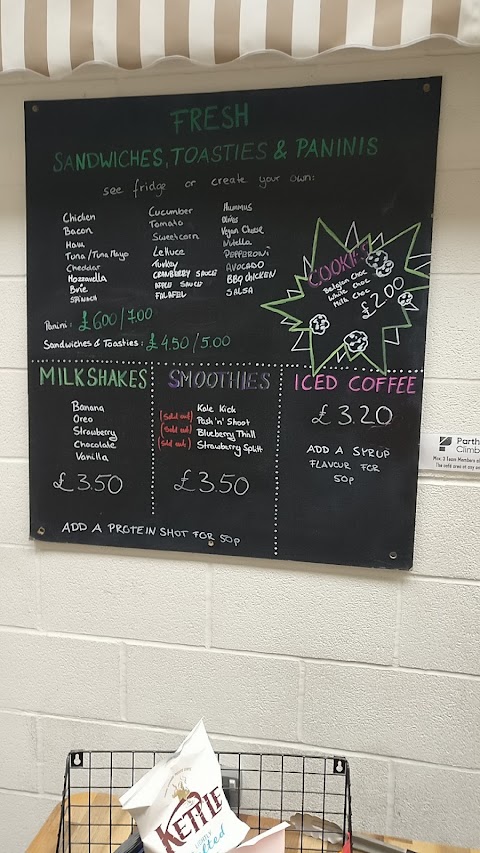 FRESH
SANDWICHES, TOASTIES & PANINIS
see fridge or create your own:
Chicken
Bacon
Ham
Tuna/Tuna Mayo
Cheddar
Mozzarella
Brie
SPINACH
Cucumber
Tomato
Sweetcorn
Lettuce
Turkey
CRANBERRY SAUCE
APPLE SAUCE
FALAFEL
Hummus
Olives
Vegan Cheese
Nutella
PEPPERONI
AVOCADO
BBQ CHICKEN
SALSA
COOKIES
Belgian Choc
White Choc
Milk Choc
£2.00
Panini: £6.00/7.00
Sandwiches & Toasties: £4.50/5.00
MILKSHAKES
Banana
Oreo
Strawberry
Chocolate
Vanilla
£3.50
SMOOTHIES
Kale Kick
(Sold out) Pash 'n' Shoot
(Sold out) Blueberry Thrill
(Sold out) Strawberry Split
£3.50
ADD A PROTEIN SHOT FOR 50p
ICED COFFEE
£3.20
ADD A SYRUP
FLAVOUR FOR
50p
Parth
Climb
Max. 3 Team Members
The café area at any
KETTLE
LIGHTLY
salted